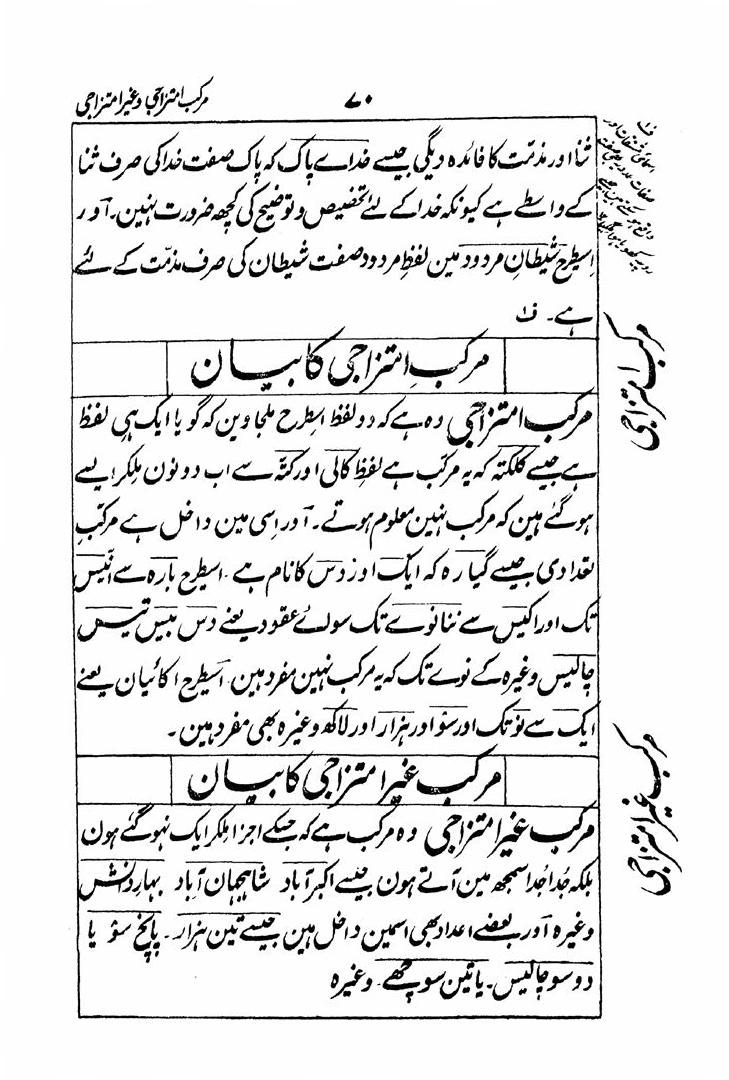 مرکب امتزاجی وغیر امتزاجی
۷۰
ثنا اور مذمّت کا فائدہ دیگی جیسے خداے پاک کہ پاک صفت خدا کی صرف ثنا
کے واسطے ہے کیونکہ خدا کے لئے تخصیص و توضیح کی کچھ ضرورت نہین۔ آور
اِسیطرح شیطانِ مردود مین لفظِ مردود صفت شیطان کی صرف مذمّت کے لئے
ہے۔ ف۱
مرکبِ امتزاجی کا بیان
مرکب امتزاجی وہ ہے کہ دو لفظ اِسطرح ملجاوین کہ گویا ایک ہی لفظ
ہے جیسے کلکتہ کہ یہ مرکّب ہے لفظِ کالی اور کتّہ سے اب دونون مِلکر ایسے
ہوگئے ہین کہ مرکب نہین معلوم ہوتے۔ آور اِسی مین داخل ہے مرکبِ
تعدادی جیسے گیارہ کہ ایک اور دس کا نام ہے۔ اسیطرح بارہ سے اُنیس
تک اور اکیس سے ننانوے تک سوائے عقود یعنے دس بیس تیس
چالیس وغیرہ کے نوے تک کہ یہ مرکب نہین مفرد ہین۔ آسیطرح اکائیان یعنے
ایک سے نو تک اور سو اور ہزار اور لاکھ وغیرہ بھی مفرد ہین۔
مرکب غیر امتزاجی کا بیان
مرکب غیر امتزاجی وہ مرکب ہے کہ جسکے اجزا مِلکر ایک نہوگئے ہون
بلکہ جُدا جُدا سمجھ مین آتے ہون جیسے اکبر آباد شاہجہان آباد بہارِ دانش
وغیرہ آور بعضے اعداد بھی اسمین داخل ہین جیسے تین ہزار۔ پانچ سو یا
دو سو چالیس۔ یا تین سو چھے۔ وغیرہ
ف۱
مرکب امتزاجی
مرکب غیر امتزاجی